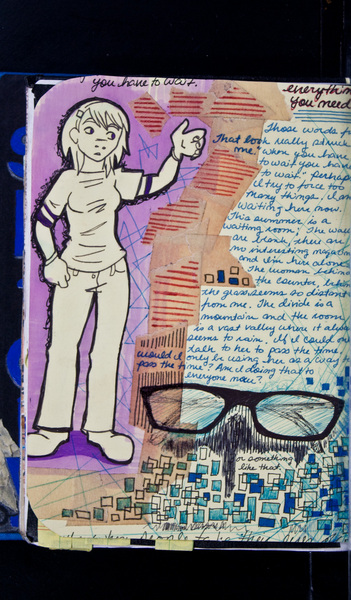 you have to wait.
everything
you need
Those words from
that book really struck
me. "When you have
to wait you have
to wait." Perhaps
I try to force too
many things. I am
waiting here now.
This summer is a
waiting room. The walls
are blank, there are
no interesting magazines
and I'm here alone.
The woman behind
the counter, behind
the glass seems so distant
from me. The divide is a
mountain and the room
is a vast valley where it always
seems to rain. If I could only
talk to her to pass the time
would I only be using her as a way to
pass the time? Am I doing that to
everyone now?
or something
like that.